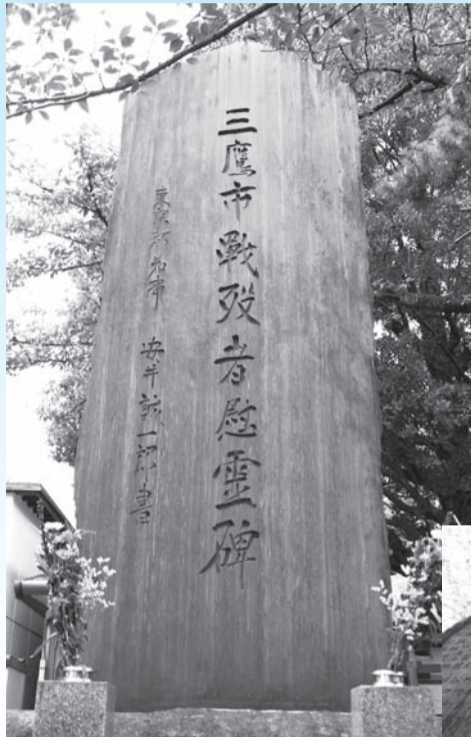 三鷹市戰歿者慰霊碑
東京都知事 安井誠一郎書